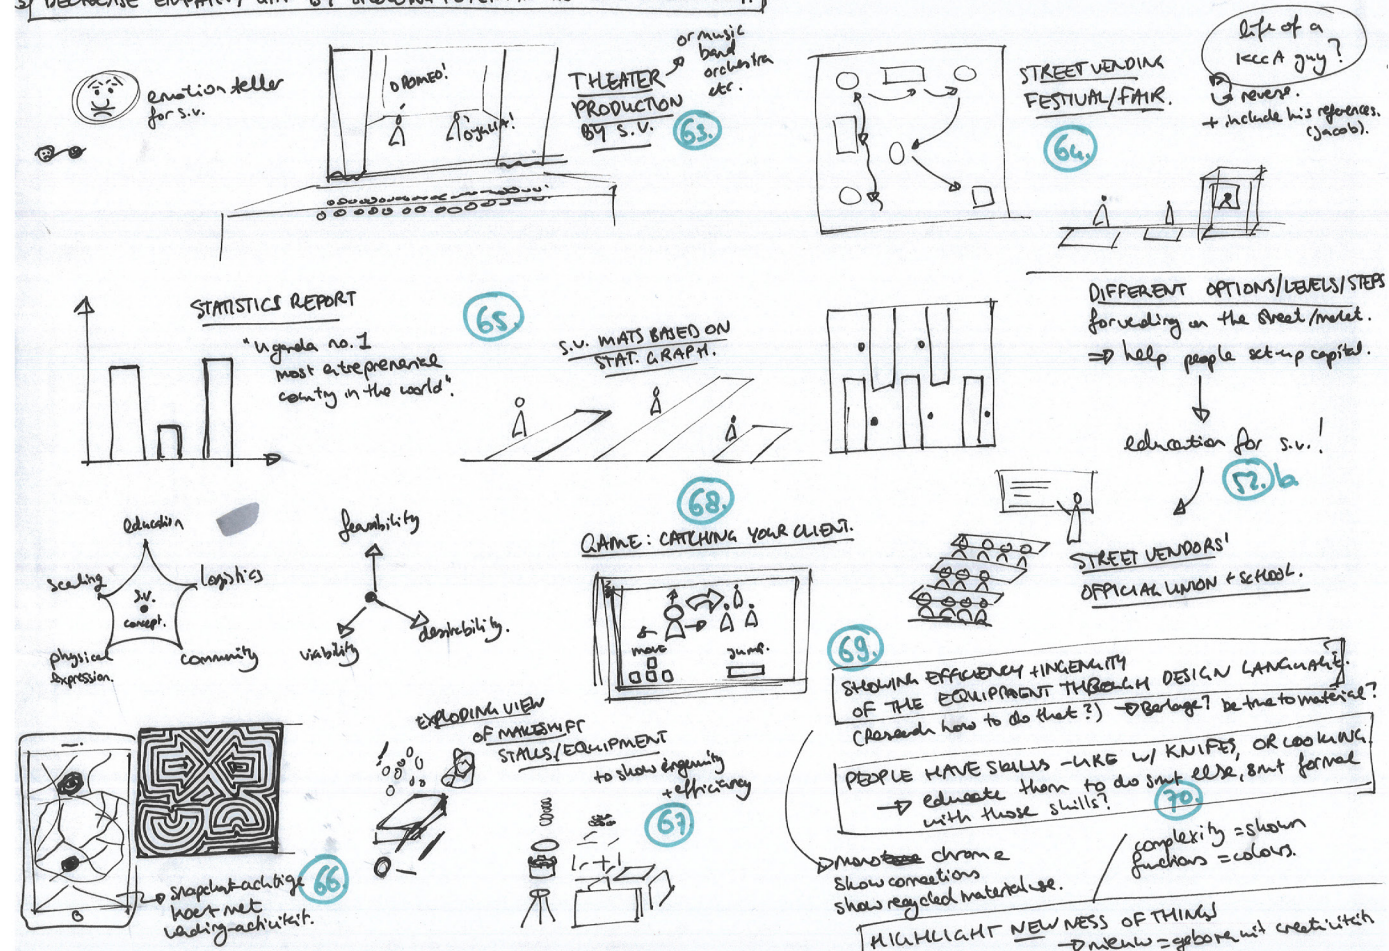 emotion teller
for s.v.
O ROMEO!
O JULIA!
THEATER
PRODUCTION
BY S.V.
63.
or music
band
orchestra
etc.
STREET VENDING
FESTIVAL/FAIR.
64.
life of a
KCCA guy?
reverse.
+ include his references.
(Jacob).
STATISTICS REPORT
"Uganda no. 1
most entreprenerial
country in the world".
65.
S.V. MATS BASED ON
STAT. GRAPH.
DIFFERENT OPTIONS/LEVELS/STEPS
for vending on the street/market.
⇒ help people set-up capital.
education for s.v.!
52.b
STREET VENDORS'
OFFICIAL UNION + SCHOOL.
education
scaling
logistics
s.v.
concept.
physical
expression.
community
feasibility
viability
desirability.
68.
GAME: CATCHING YOUR CLIENT.
move
jump.
69.
SHOWING EFFICIENCY + INGENUITY
OF THE EQUIPMENT THROUGH DESIGN LANGUAGE.
(Research how to do that?) → Berlage? be true to material?
PEOPLE HAVE SKILLS - LIKE W/ KNIFES, OR COOKING
→ educate them to do smt else, smt formal
with those skills?
70.
EXPLODING VIEW
OF MAKESHIFT
STALLS/EQUIPMENT
to show ingenuity
+ efficiency
67.
66.
→ snapchat-achtige
heat net
vending-activiteit.
chrome
show connections
show recycled material use.
complexity = shown
functions = colours.
HIGHLIGHT NEWNESS OF THINGS
→ nieuw = geboren uit creativiteit